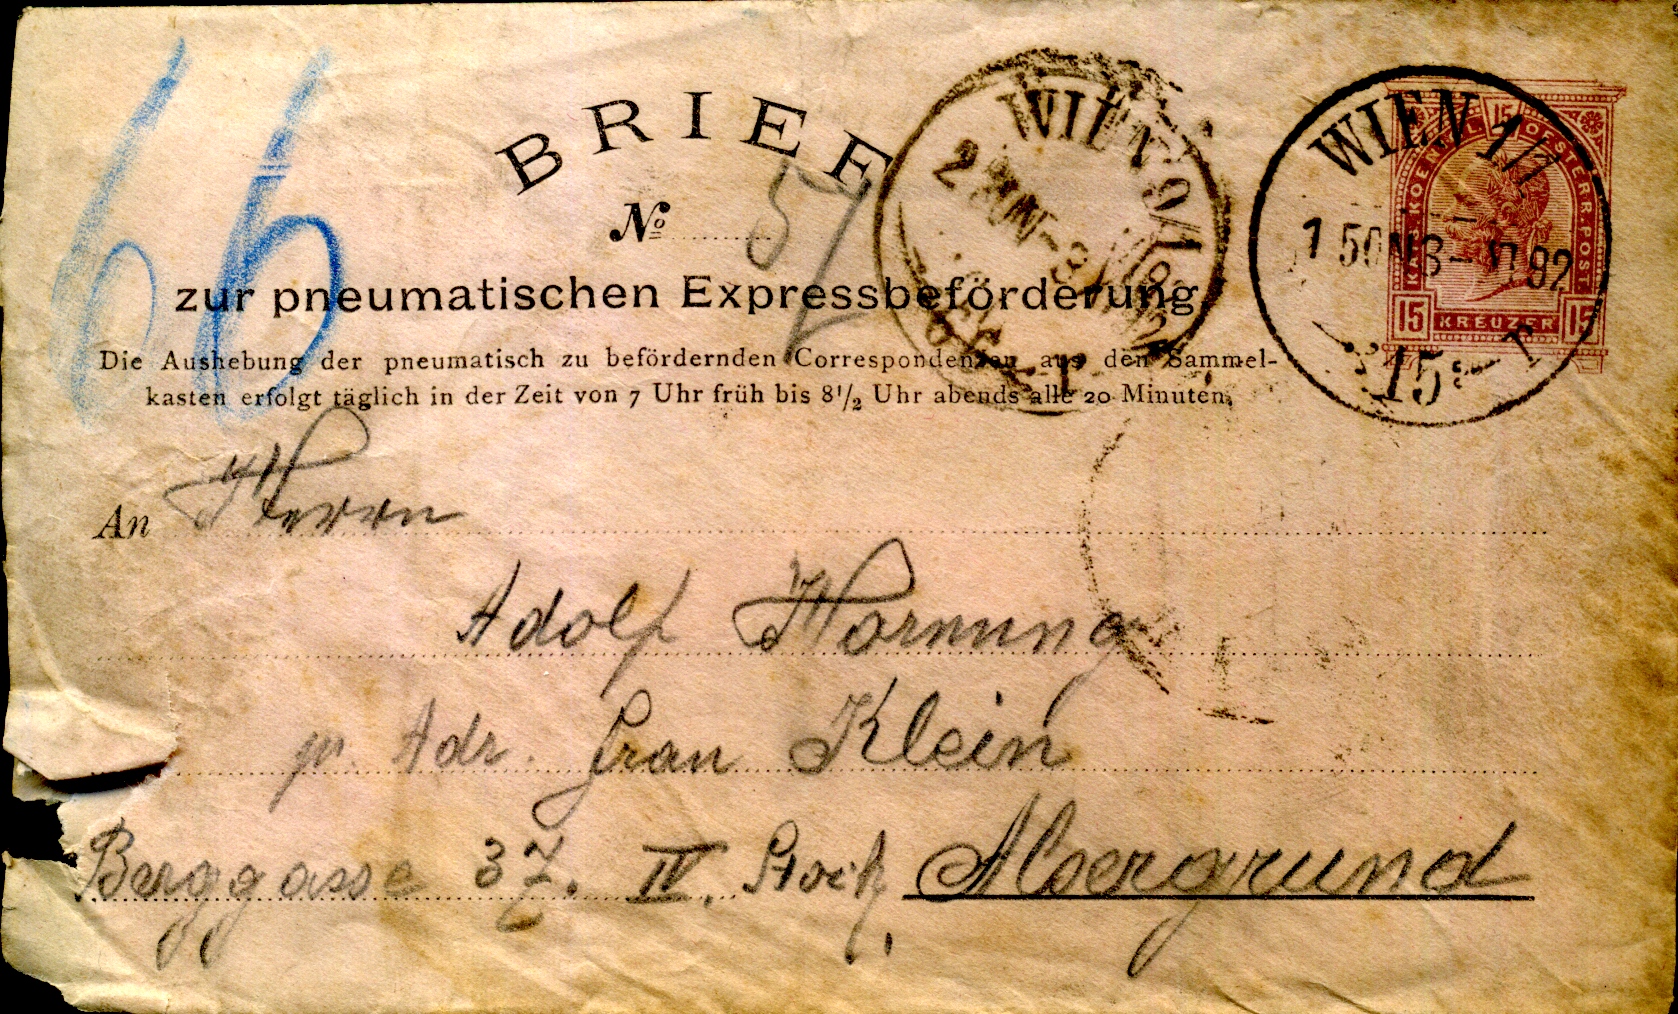 66
BRIEF
No 57
zur pneumatischen Expressbeförderung
Die Aushebung der pneumatisch zu befördernden Correspondenzen aus den Sammel-
kasten erfolgt täglich in der Zeit von 7 Uhr früh bis 8 1/2 Uhr abends alle 20 Minuten.
WIEN 9/1
WIEN 1/1
1 50N 3
92
15
KAIS. KOENIGL. OESTERR. POST
15
15 KREUZER 15
An Herrn
Adolf Hornung
pr. Adr. Frau Klein
Berggasse 37. IV. Stock, Alsergrund